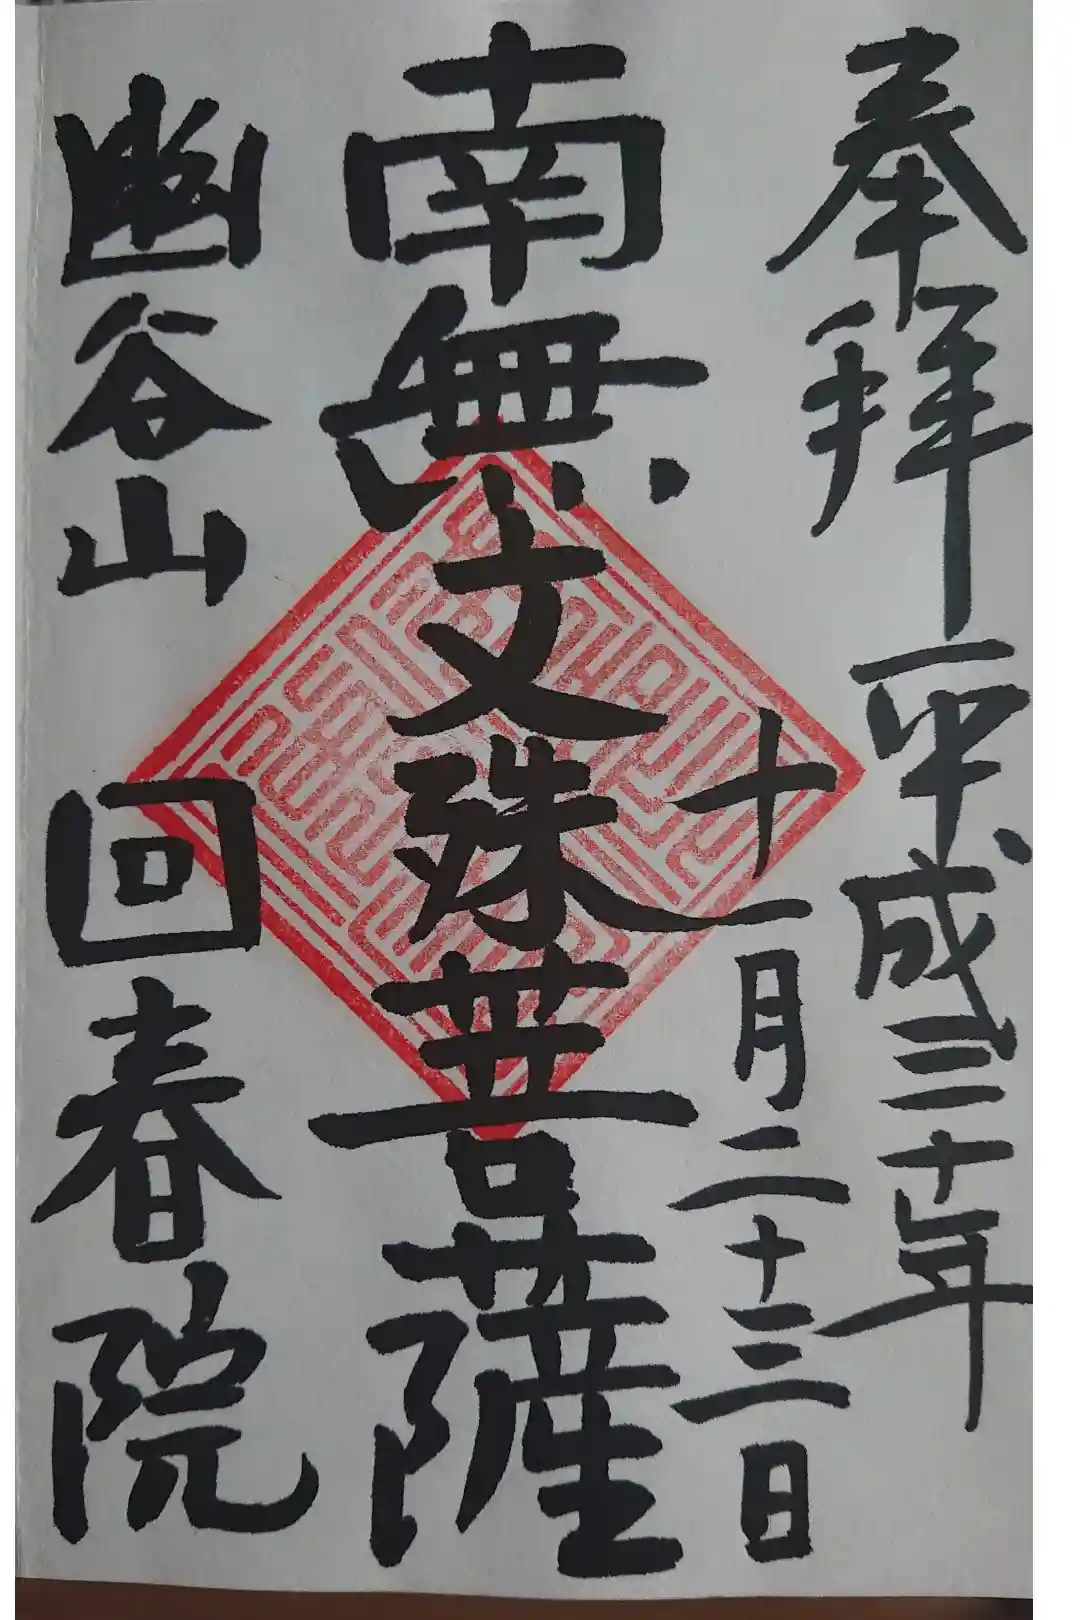 奉拝 平成三十年
十一月二十三日
南無文殊菩薩
幽谷山 回春院